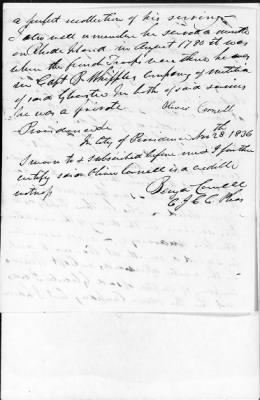 a perfect recollection of his service
I also well remember he served a month
on Rhode Island in August 1780 it was
when the french Troops were there he was
in Capt Whipples Company of militia
of said Glocester In both of said services
he was a private
Oliver Cornell
Providence
In City of Providence 28th 1836
Sworn to & subscribed before me & I further
certify said Oliver Cornell is a credible
witness
Cornell
C J C C